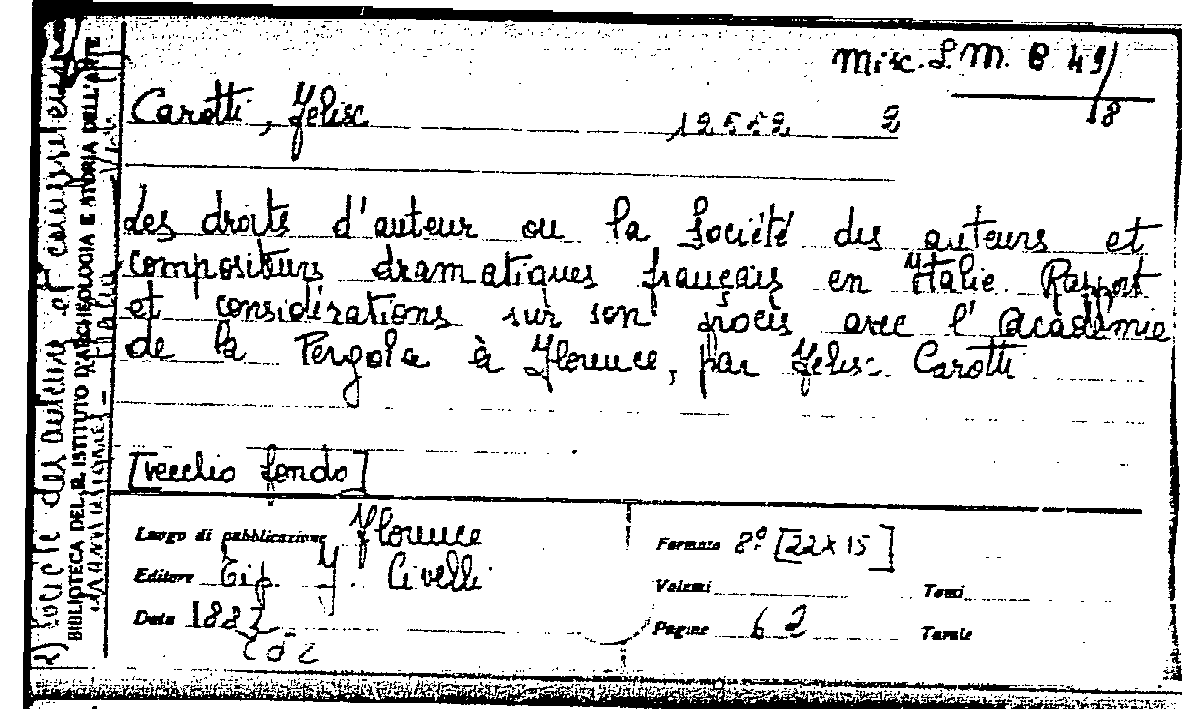 Misc. S.M. B 49/
8
Carotti, Felisc 12552 2
Les droits d'auteur ou la Société des auteurs et
compositeurs dramatiques français en Italie. Rapport
et considérations sur son procès avec l'Académie
de la Pergola à Florence, par Felisc Carotti
[vecchio fondo]
Luogo di pubblicazione Florence
Editore Tip. J. Civelli
Data 1887
Formato 8º [22X15]
Volumi Tomi
Pagine 62 Tavole
BIBLIOTECA DEL R. ISTITUTO D'ARCHEOLOGIA E STORIA DELL'ARTE
2) Société des auteurs et compositeurs